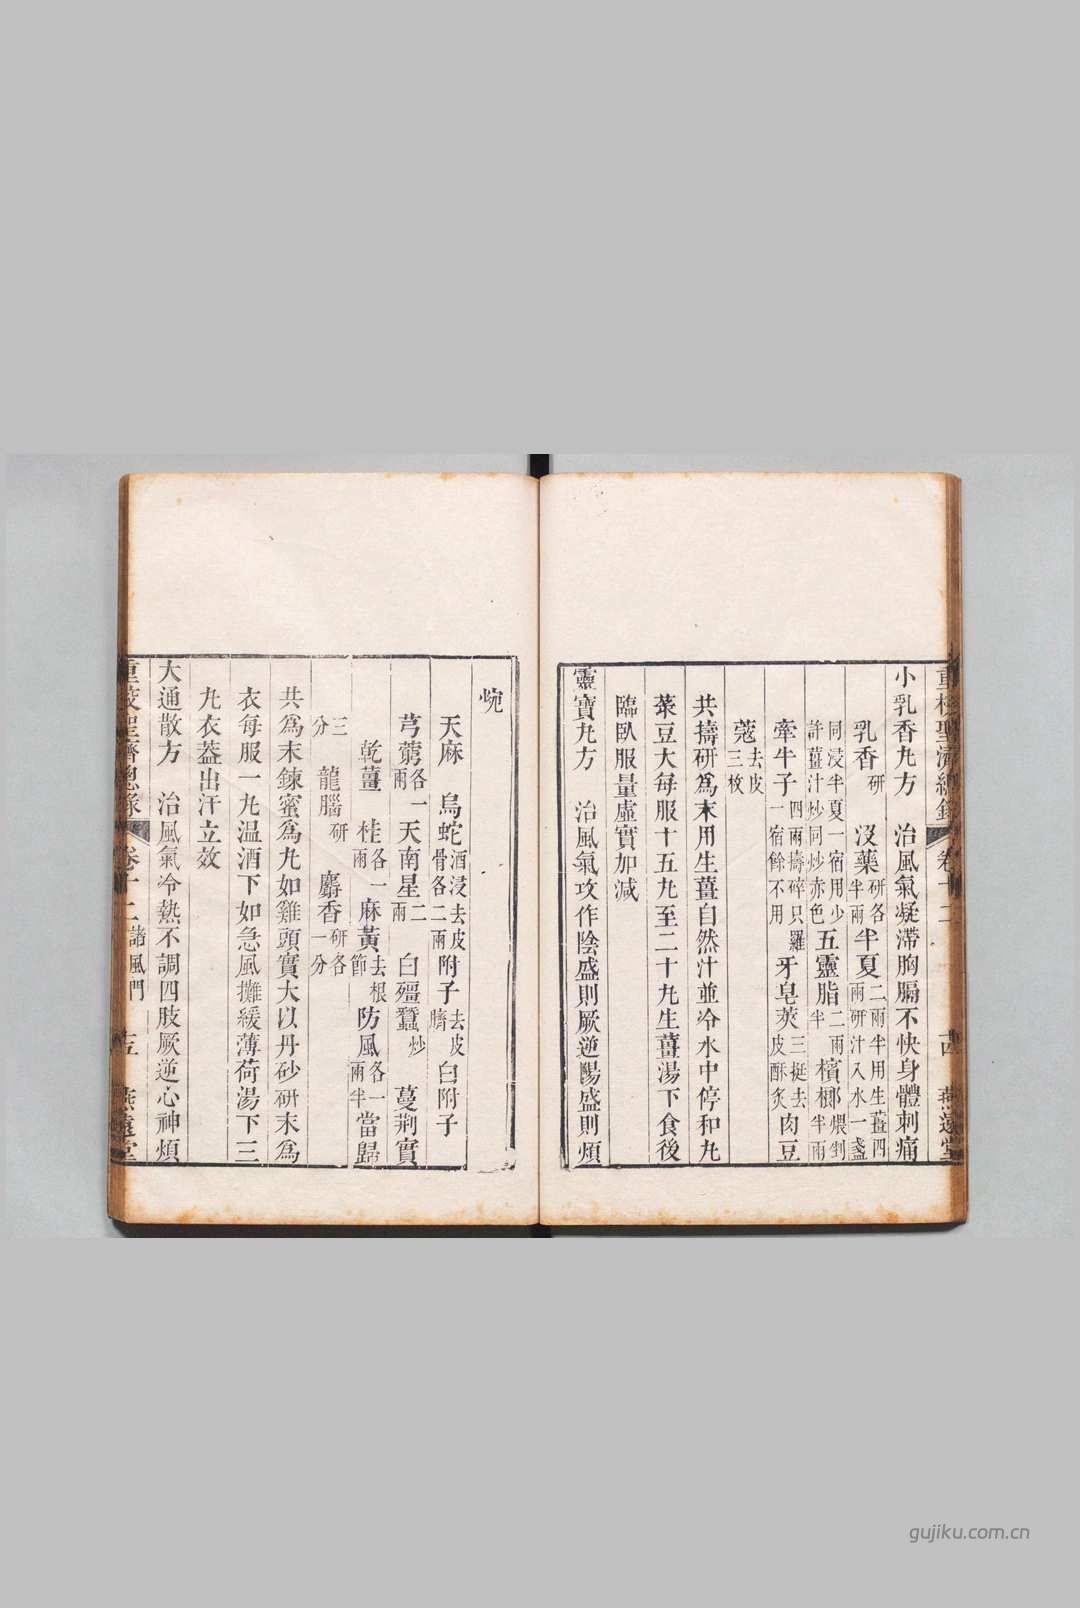 重校聖濟總錄 卷十二 十四 燕遠堂
小乳香丸方 治風氣凝滯胸膈不快身體刺痛
乳香研 沒藥研各半兩 半夏二兩半用生薑四兩研汁入水一盞
同浸半夏一宿用少許薑汁炒同炒赤色 五靈脂二兩半 檳榔煨剉半兩
牽牛子四兩擣碎只羅一宿餘不用 牙皂莢三挺去皮酥炙 肉豆
蔻去皮三枚
共擣研爲末用生薑自然汁並冷水中停和丸
菉豆大每服十五丸至二十丸生薑湯下食後
臨臥服量虛實加減
靈寶丸方 治風氣攻作陰盛則厥逆陽盛則煩
惋
天麻 烏蛇酒浸去皮骨各二兩 附子去皮臍 白附子
芎藭各一兩 天南星二兩 白殭蠶炒 蔓荆實
乾薑 桂各一兩 麻黃去根節 防風各一兩半 當歸
三分 龍腦研 麝香研各一分
共爲末鍊蜜爲丸如雞頭實大以丹砂研末爲
衣每服一丸温酒下如急風攤緩薄荷湯下三
丸衣蓋出汗立效
大通散方 治風氣冷熱不調四肢厥逆心神煩
重校聖濟總錄 卷十二 諸風門 十五 燕遠堂
gujiku.com.cn